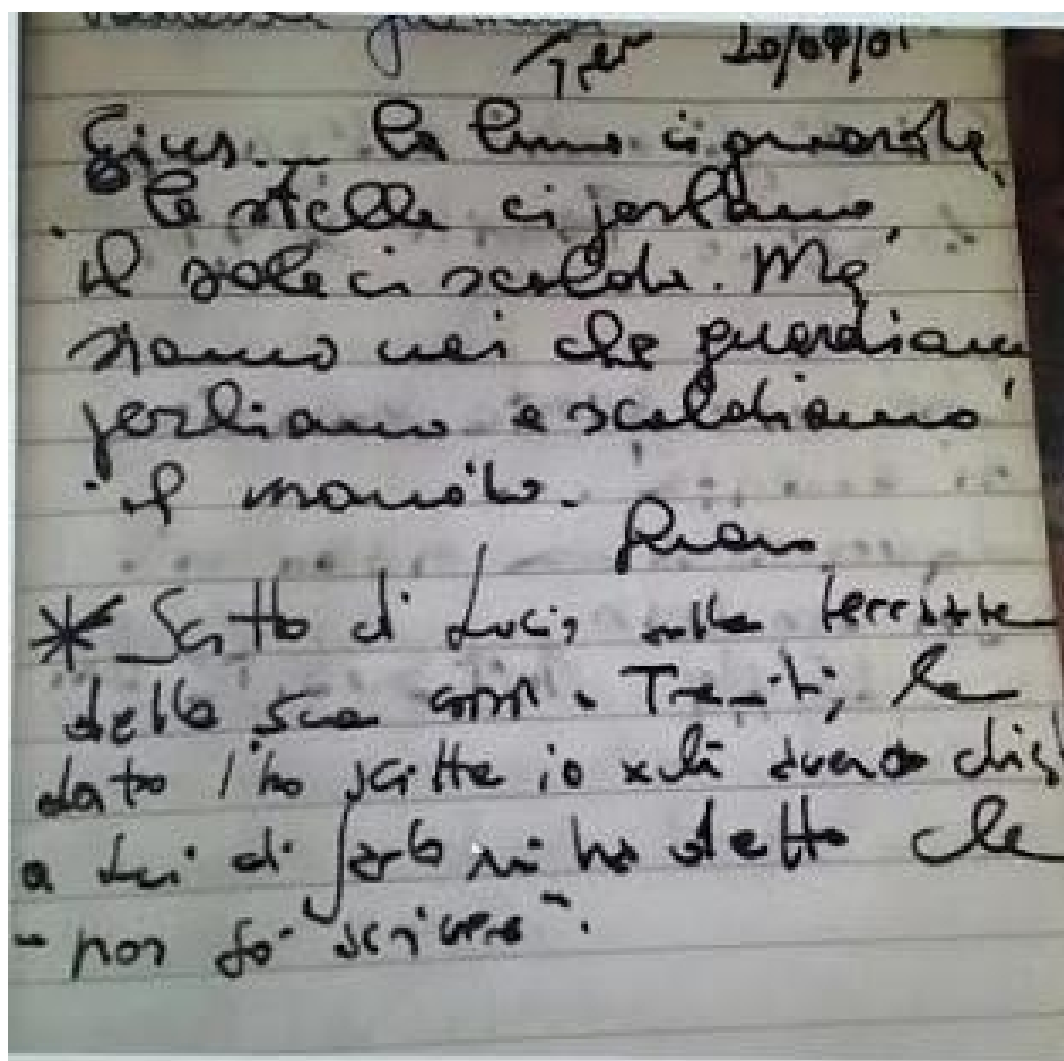 20/07/01
la luna ci guarda,
le stelle ci parlano,
il sole ci scalda. Ma
siamo noi che guardiamo
parliamo e scaldiamo
il mondo.
* Scritto di Lucio sulla terrazza
della sua Tremiti, la
data l'ho scritta io xché avendo
a lui di farlo mi ha detto che
"non so scrivere".